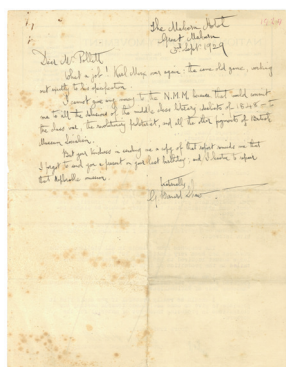 The Malvern Hotel
Great Malvern
3rd Sept 1929
Dear Mr Pollitt
What a job! Karl Marx over again: the same old game, working
out exactly to his specification.
I cannot give any money to the N.M.M. because that would commit
me to all the of the middle class literary of 1848
the class war, the revolutionary proletariat, and all the other figments of
Museum,
But your kindness in sending me a copy of that report reminds me that
I forgot to send you a present on your last birthday; and I hasten to repair
that deplorable omission.
G. Bernard Shaw